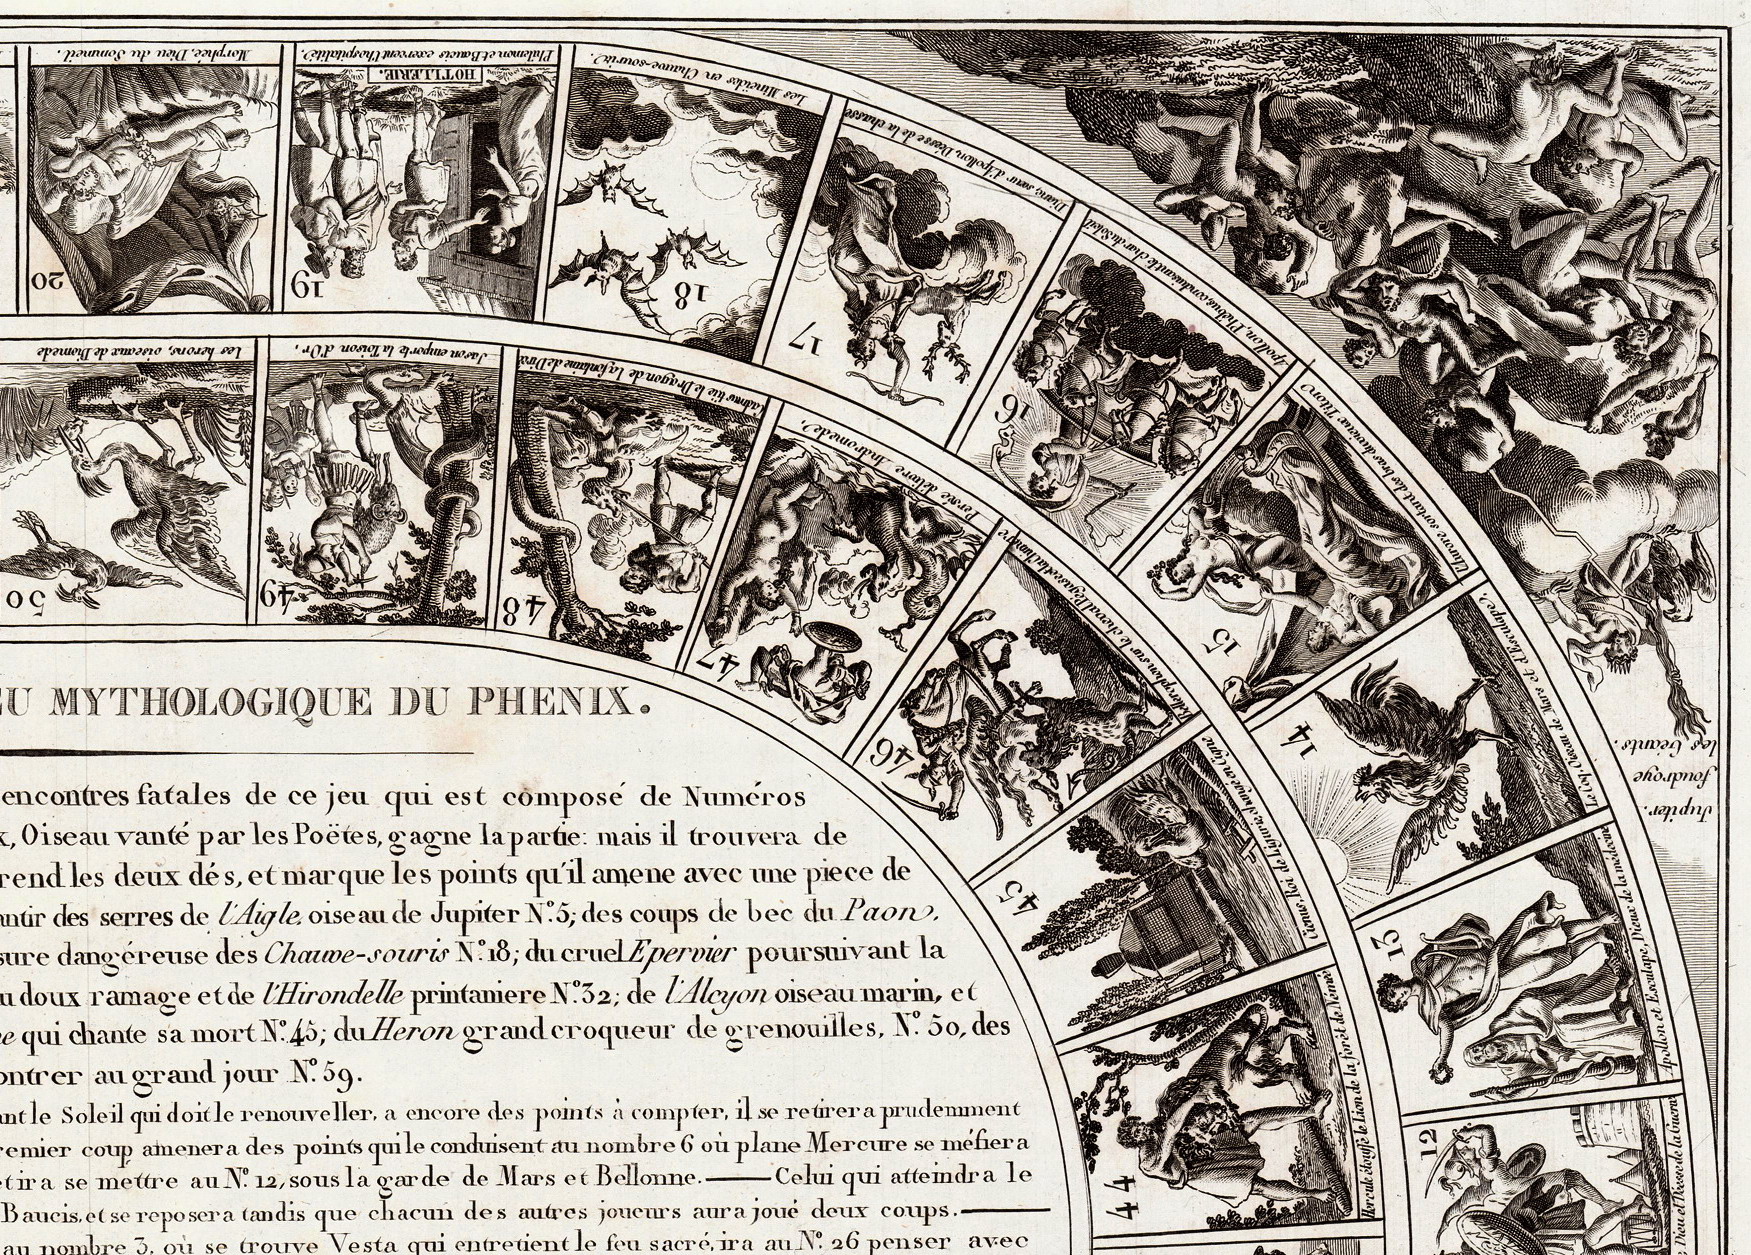 Morphée, Dieu du Sommeil.
20
Philemon et Baucis exercent l'hospitalité.
HOTELLERIE.
19
Les Mineïdes en Chauve-souris.
18
Diane, sœur d'Apollon Déesse de la chasse
17
Apollon, Phébus conduisant le char du Soleil
16
L'Aurore sortant des bras du vieux Titon
15
Le Coq, Oiseau de Mars et d'Esculape.
14
Apollon et Esculape, Dieux de la médecine
13
Dieu et Déesse de la Guerre
12
Les hérons, oiseaux de Diomede
50
Jason emporte la Toison d'Or,
49
Cadmus tue le Dragon de la fontaine de Dircé
48
Persée délivre Andromede.
47
Bellerophon sur le cheval Pégase et la Chimere
46
Cycnus, Roi de Ligurie changé en Cigne
45
Hercule étouffe le Lion de la forêt de Némée
44
Jupiter
foudroye
les Géants.
EU MYTHOLOGIQUE DU PHENIX.
encontres fatales de ce jeu qui est composé de Numéros
x, Oiseau vanté par les Poëtes, gagne la partie: mais il trouvera de
rend les deux dés, et marque les points qu'il amene avec une piece de
antir des serres de l'Aigle, oiseau de Jupiter N.º 5; des coups de bec du Paon,
sure dangéreuse des Chauve-souris N.º 18; du cruel Epervier poursuivant la
u doux ramage et de l'Hirondelle printaniere N.º 32; de l'Alcyon oiseau marin, et
e qui chante sa mort N.º 45; du Heron grand croqueur de grenouilles, N.º 50, des
ontrer au grand jour N.º 59.
ant le Soleil qui doit le renouveller, a encore des points à compter, il se retirera prudemment
remier coup amenera des points qui le conduisent au nombre 6 où plane Mercure se méfiera
tira se mettre au N.º 12, sous la garde de Mars et Bellonne. — Celui qui atteindra le
Baucis, et se reposera tandis que chacun des autres joueurs aura joué deux coups. —
au nombre 3, où se trouve Vesta qui entretient le feu sacré, ira au N.º 26 penser avec